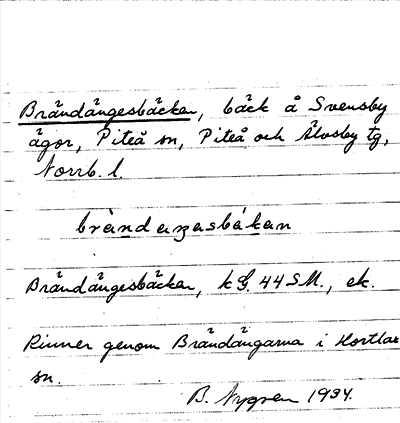 Brändängesbäcken, bäck å Svensby
ägor, Piteå sn, Piteå och Älvsby tg,
Norrb. l.
brȁndaŋasbȁkan
Brändängesbäcken, kG. 44 SM., ek.
Rinner genom Brändängarna i Hortlax
sn.
B. Nygren 1934.